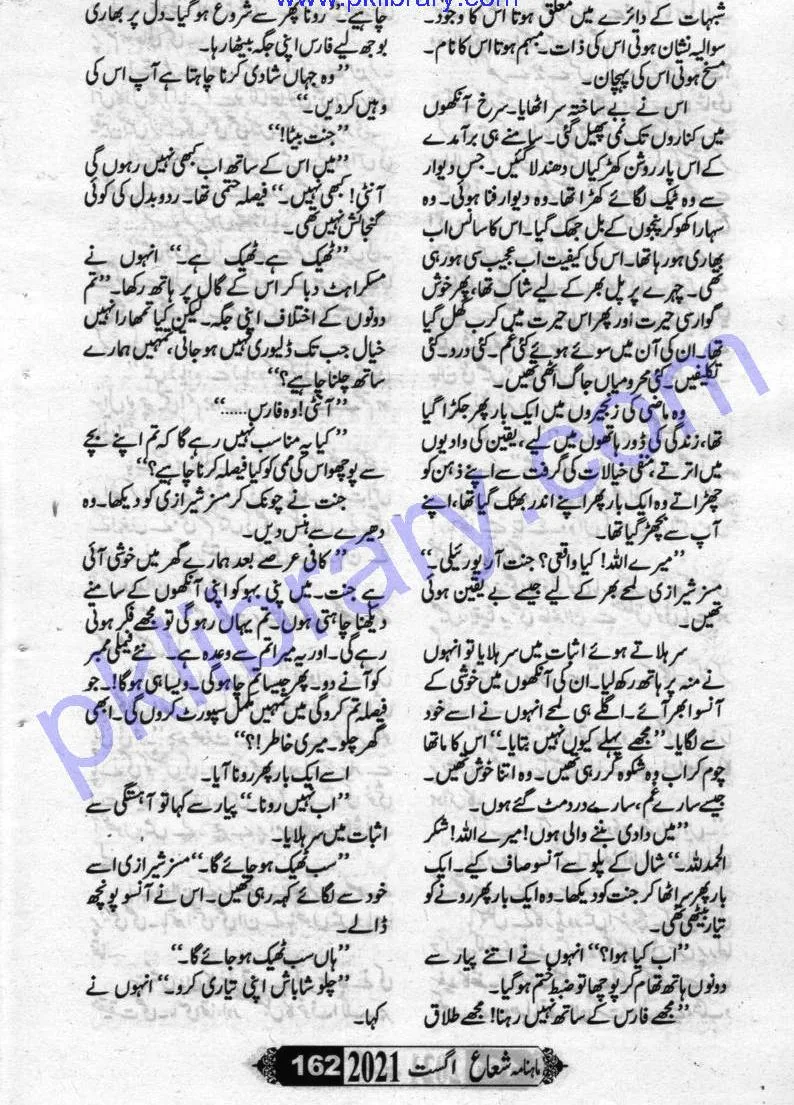 www.pklibrary.com
شبہات کے دائرے میں معلق ہوتا اس کا وجود۔
سوالیہ نشان ہوتی اس کی ذات۔ مبہم ہوتا اس کا نام۔
مسخ ہوتی اس کی پہچان۔
اس نے بے ساختہ سر اٹھایا۔ سرخ آنکھوں
میں کناروں تک نمی پھیل گئی۔ سامنے ہی برآمدے
کے اس پار روشن کھڑکیاں دھندلا گئیں۔ جس دیوار
سے وہ ٹیک لگائے کھڑا تھا۔ وہ دیوار فنا ہوئی۔ وہ
سہارا کھو کر پنجوں کے بل جھک گیا۔ اس کا سانس اب
بھاری ہو رہا تھا۔ اس کی کیفیت اب عجیب سی ہو رہی
تھی۔ چہرے پر پل بھر کے لیے شاک تھا، پھر خوش
گوار سی حیرت اور پھر اس حیرت میں کرب گھل گیا
تھا۔ ان کی آن میں سوئے ہوئے کئی غم۔ کئی درد۔ کئی
تکلیفیں۔ کئی محرومیاں جاگ اٹھی تھیں۔
وہ ماضی کی زنجیروں میں ایک بار پھر جکڑا گیا
تھا، زندگی کی ڈور ہاتھوں میں لیے، یقین کی وادیوں
میں اترتے، منفی خیالات کی گرفت سے اپنے ذہن کو
چھڑاتے وہ ایک بار پھر اپنے اندر بھٹک گیا تھا، اپنے
آپ سے بچھڑ گیا تھا۔
”میرے اللہ! کیا واقعی؟ جنت آر یو رئیلی۔“
مسز شیرازی لمحے بھر کے لیے جیسے بے یقین ہوئی
تھیں۔
سر ہلاتے ہوئے اثبات میں سر ہلایا تو انہوں
نے منہ پر ہاتھ رکھ لیا۔ ان کی آنکھوں میں خوشی کے
آنسو ابھر آئے۔ اگلے ہی لمحے انہوں نے اسے خود
سے لگایا۔ ”مجھے پہلے کیوں نہیں بتایا۔“ اس کا ماتھا
چوم کر اب وہ شکوہ کر رہی تھیں۔ وہ اتنا خوش تھیں۔
جیسے سارے غم، سارے درد مٹ گئے ہوں۔
”میں دادی بننے والی ہوں! میرے اللہ! شکر
الحمدللہ۔“ شال کے پلو سے آنسو صاف کیے۔ ایک
بار پھر سر اٹھا کر جنت کو دیکھا۔ وہ ایک بار پھر رونے کو
تیار بیٹھی تھی۔
”اب کیا ہوا؟“ انہوں نے اتنے پیار سے
دونوں ہاتھ تھام کر پوچھا تو ضبط ختم ہو گیا۔
”مجھے فارس کے ساتھ نہیں رہنا! مجھے طلاق
چاہیے۔“ رونا پھر سے شروع ہو گیا۔ دل پر بھاری
بوجھ لیے فارس اپنی جگہ بیٹھا رہا۔
”وہ جہاں شادی کرنا چاہتا ہے آپ اس کی
وہیں کر دیں۔“
”جنت بیٹا!“
”میں اس کے ساتھ اب کبھی نہیں رہوں گی
آنٹی! کبھی نہیں۔“ فیصلہ حتمی تھا۔ ردوبدل کی کوئی
گنجائش نہیں تھی۔
”ٹھیک ہے۔ ٹھیک ہے۔“ انہوں نے
مسکراہٹ دبا کر اس کے گال پر ہاتھ رکھا۔ ”تم
دونوں کے اختلاف اپنی جگہ۔ لیکن کیا تمہارا نہیں
خیال جب تک ڈلیوری نہیں ہو جاتی، تمہیں ہمارے
ساتھ چلنا چاہیے؟“
”آنٹی! وہ فارس ......“
”کیا یہ مناسب نہیں رہے گا کہ تم اپنے بچے
سے پوچھو اس کی ممی کو کیا فیصلہ کرنا چاہیے؟“
جنت نے چونک کر مسز شیرازی کو دیکھا۔ وہ
دھیرے سے ہنس دیں۔
”کافی عرصے بعد ہمارے گھر میں خوشی آئی
ہے جنت۔ میں اپنی بہو کو اپنی آنکھوں کے سامنے
دیکھنا چاہتی ہوں۔ تم یہاں رہو گی تو مجھے فکر ہوتی
رہے گی۔ اور یہ میرا تم سے وعدہ ہے۔ نئے فیملی ممبر
کو آنے دو۔ پھر جیسا تم چاہو گی۔ ویسا ہی ہوگا!۔ جو
فیصلہ تم کرو گی میں تمہیں مکمل سپورٹ کروں گی۔ ابھی
گھر چلو۔ میری خاطر!؟“
اسے ایک بار پھر رونا آیا۔
”اب نہیں رونا۔“ پیار سے کہا تو آہستگی سے
اثبات میں سر ہلایا۔
”سب ٹھیک ہو جائے گا۔“ مسز شیرازی اسے
خود سے لگائے کہہ رہی تھیں۔ اس نے آنسو پونچھ
ڈالے۔
”ہاں سب ٹھیک ہو جائے گا۔“
”چلو شاباش اپنی تیاری کرو۔“ انہوں نے
کہا۔
pklibrary.com
ماہنامہ شعاع اگست 2021 162